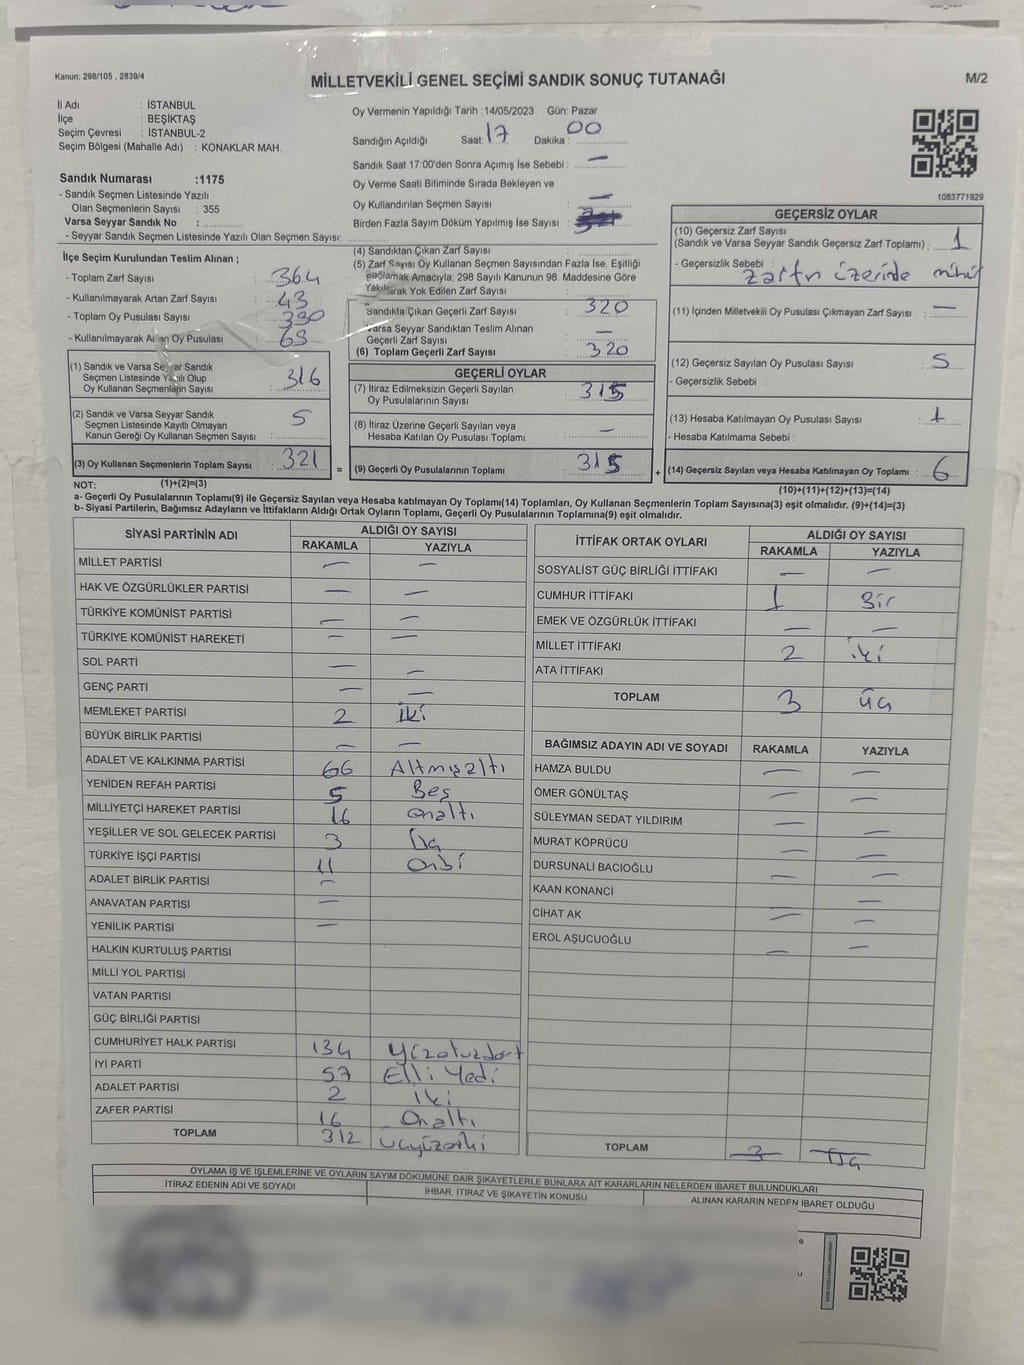 Kanun: 298/105 , 2839/4
MİLLETVEKİLİ GENEL SEÇİMİ SANDIK SONUÇ TUTANAĞI
M/2
İl Adı : İSTANBUL
İlçe : BEŞİKTAŞ
Seçim Çevresi : İSTANBUL-2
Seçim Bölgesi (Mahalle Adı) : KONAKLAR MAH.
Sandık Numarası :1175
- Sandık Seçmen Listesinde Yazılı
Olan Seçmenlerin Sayısı : 355
Varsa Seyyar Sandık No :
- Seyyar Sandık Seçmen Listesinde Yazılı Olan Seçmen Sayısı:
İlçe Seçim Kurulundan Teslim Alınan ;
- Toplam Zarf Sayısı : 364
- Kullanılmayarak Artan Zarf Sayısı : 43
- Toplam Oy Pusulası Sayısı : 390
- Kullanılmayarak Artan Oy Pusulası : 69
(1) Sandık ve Varsa Seyyar Sandık
Seçmen Listesinde Yazılı Olup
Oy Kullanan Seçmenlerin Sayısı : 316
(2) Sandık ve Varsa Seyyar Sandık
Seçmen Listesinde Kayıtlı Olmayan
Kanun Gereği Oy Kullanan Seçmen Sayısı : 5
(3) Oy Kullanan Seçmenlerin Toplam Sayısı : 321
Oy Vermenin Yapıldığı Tarih :14/05/2023 Gün: Pazar
Sandığın Açıldığı Saat: 17 Dakika : 00
Sandık Saat 17:00'den Sonra Açımış İse Sebebi : —
Oy Verme Saati Bitiminde Sırada Bekleyen ve
Oy Kullandırılan Seçmen Sayısı : —
Birden Fazla Sayım Döküm Yapılmış İse Sayısı :
(4) Sandıktan Çıkan Zarf Sayısı :
(5) Zarf Sayısı Oy Kullanan Seçmen Sayısından Fazla İse, Eşitliği
Sağlamak Amacıyla; 298 Sayılı Kanunun 98. Maddesine Göre
Yakılarak Yok Edilen Zarf Sayısı :
Sandıkta Çıkan Geçerli Zarf Sayısı : 320
Varsa Seyyar Sandıktan Teslim Alınan
Geçerli Zarf Sayısı : —
(6) Toplam Geçerli Zarf Sayısı : 320
GEÇERLİ OYLAR
(7) İtiraz Edilmeksizin Geçerli Sayılan
Oy Pusulalarının Sayısı : 315
(8) İtiraz Üzerine Geçerli Sayılan veya
Hesaba Katılan Oy Pusulası Toplamı : —
= (9) Geçerli Oy Pusulalarının Toplamı : 315
1083771929
GEÇERSİZ OYLAR
(10) Geçersiz Zarf Sayısı
(Sandık ve Varsa Seyyar Sandık Geçersiz Zarf Toplamı) : 1
- Geçersizlik Sebebi : zarfın üzerinde mühür
(11) İçinden Milletvekili Oy Pusulası Çıkmayan Zarf Sayısı : —
(12) Geçersiz Sayılan Oy Pusulası Sayısı : 5
- Geçersizlik Sebebi :
(13) Hesaba Katılmayan Oy Pusulası Sayısı :
- Hesaba Katılmama Sebebi :
+ (14) Geçersiz Sayılan veya Hesaba Katılmayan Oy Toplamı : 6
NOT: (1)+(2)=(3)
(10)+(11)+(12)+(13)=(14)
a- Geçerli Oy Pusulalarının Toplamı(9) ile Geçersiz Sayılan veya Hesaba katılmayan Oy Toplamı(14) Toplamları, Oy Kullanan Seçmenlerin Toplam Sayısına(3) eşit olmalıdır. (9)+(14)=(3)
b- Siyasi Partilerin, Bağımsız Adayların ve İttifakların Aldığı Ortak Oyların Toplamı, Geçerli Oy Pusulalarının Toplamına(9) eşit olmalıdır.
SİYASİ PARTİNİN ADI ALDIĞI OY SAYISI
RAKAMLA YAZIYLA
MİLLET PARTİSİ — —
HAK VE ÖZGÜRLÜKLER PARTİSİ — —
TÜRKİYE KOMÜNİST PARTİSİ — —
TÜRKİYE KOMÜNİST HAREKETİ — —
SOL PARTİ — —
GENÇ PARTİ — —
MEMLEKET PARTİSİ 2 iki
BÜYÜK BİRLİK PARTİSİ — —
ADALET VE KALKINMA PARTİSİ 66 Altmışaltı
YENİDEN REFAH PARTİSİ 5 Beş
MİLLİYETÇİ HAREKET PARTİSİ 16 onaltı
YEŞİLLER VE SOL GELECEK PARTİSİ 3 Üç
TÜRKİYE İŞÇİ PARTİSİ 11 Onbi
ADALET BİRLİK PARTİSİ —
ANAVATAN PARTİSİ —
YENİLİK PARTİSİ —
HALKIN KURTULUŞ PARTİSİ
MİLLİ YOL PARTİSİ
VATAN PARTİSİ
GÜÇ BİRLİĞİ PARTİSİ
CUMHURİYET HALK PARTİSİ 134 Yüzotuzdört
İYİ PARTİ 57 Elli Yedi
ADALET PARTİSİ 2 İki
ZAFER PARTİSİ 16 Onaltı
TOPLAM 312 üçyüzoniki
İTTİFAK ORTAK OYLARI ALDIĞI OY SAYISI
RAKAMLA YAZIYLA
SOSYALİST GÜÇ BİRLİĞİ İTTİFAKI — —
CUMHUR İTTİFAKI 1 Bir
EMEK VE ÖZGÜRLÜK İTTİFAKI — —
MİLLET İTTİFAKI 2 iki
ATA İTTİFAKI
TOPLAM 3 üç
BAĞIMSIZ ADAYIN ADI VE SOYADI RAKAMLA YAZIYLA
HAMZA BULDU — —
ÖMER GÖNÜLTAŞ — —
SÜLEYMAN SEDAT YILDIRIM — —
MURAT KÖPRÜCÜ — —
DURSUNALİ BACIOĞLU — —
KAAN KONANCİ —
CİHAT AK — —
EROL AŞUCUOĞLU — —
TOPLAM 3 Üç
OYLAMA İŞ VE İŞLEMLERİNE VE OYLARIN SAYIM DÖKÜMÜNE DAİR ŞİKAYETLERLE BUNLARA AİT KARARLARIN NELERDEN İBARET BULUNDUKLARI
İTİRAZ EDENİN ADI VE SOYADI İHBAR, İTİRAZ VE ŞİKAYETİN KONUSU ALINAN KARARIN NEDEN İBARET OLDUĞU